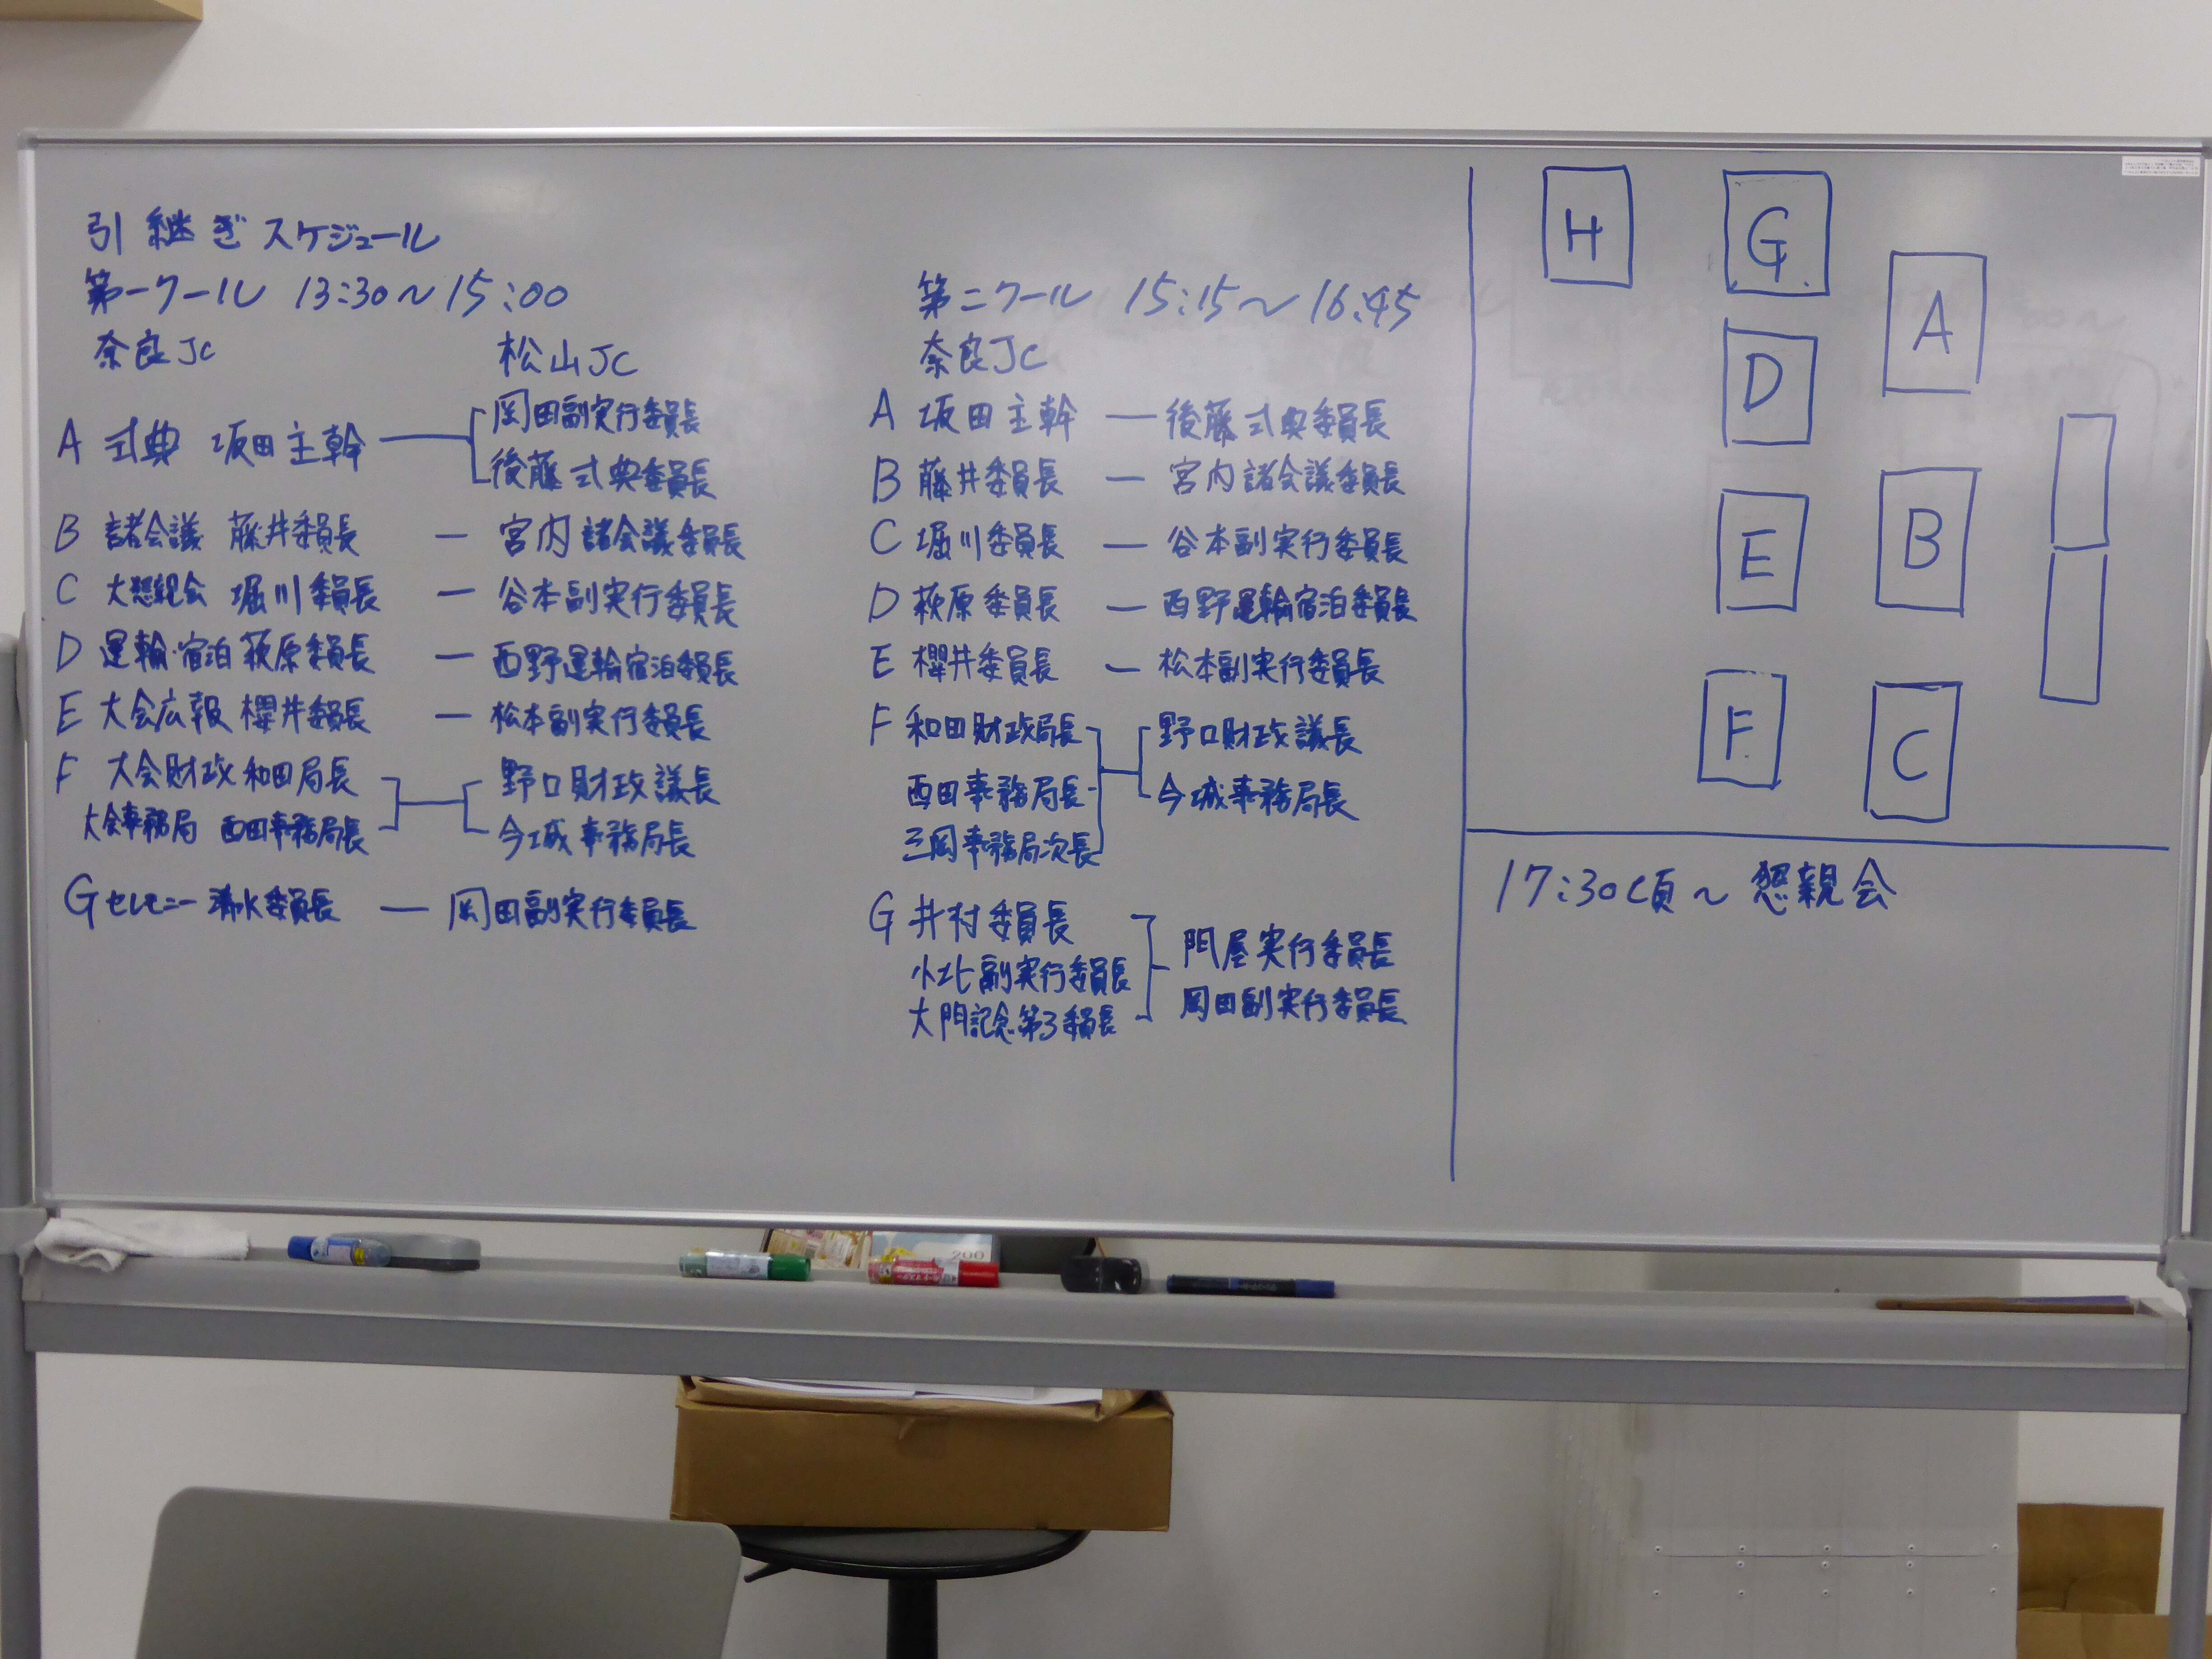 引継ぎスケジュール
第一クール 13:30～15:00
奈良JC 松山JC
A 式典 坂田主幹 — 岡田副実行委員長
後藤式典委員長
B 諸会議 藤井委員長 — 宮内諸会議委員長
C 大懇親会 堀川委員長 — 谷本副実行委員長
D 運輸・宿泊 萩原委員長 — 西野運輸宿泊委員長
E 大会広報 櫻井委員長 — 松本副実行委員長
F 大会財政 和田局長 — 野口財政議長
大会事務局 西田事務局長 今城事務局長
G セレモニー 清水委員長 — 岡田副実行委員長
第二クール 15:15～16:45
奈良JC
A 坂田主幹 — 後藤式典委員長
B 藤井委員長 — 宮内諸会議委員長
C 堀川委員長 — 谷本副実行委員長
D 萩原委員長 — 西野運輸宿泊委員長
E 櫻井委員長 — 松本副実行委員長
F 和田財政局長 — 野口財政議長
西田事務局長 今城事務局長
三岡事務局次長
G 井村委員長 — 門屋実行委員長
小北副実行委員長 岡田副実行委員長
大門記念第3委員長
H G
A
D
E B
F C
17:30頃～ 懇親会
200